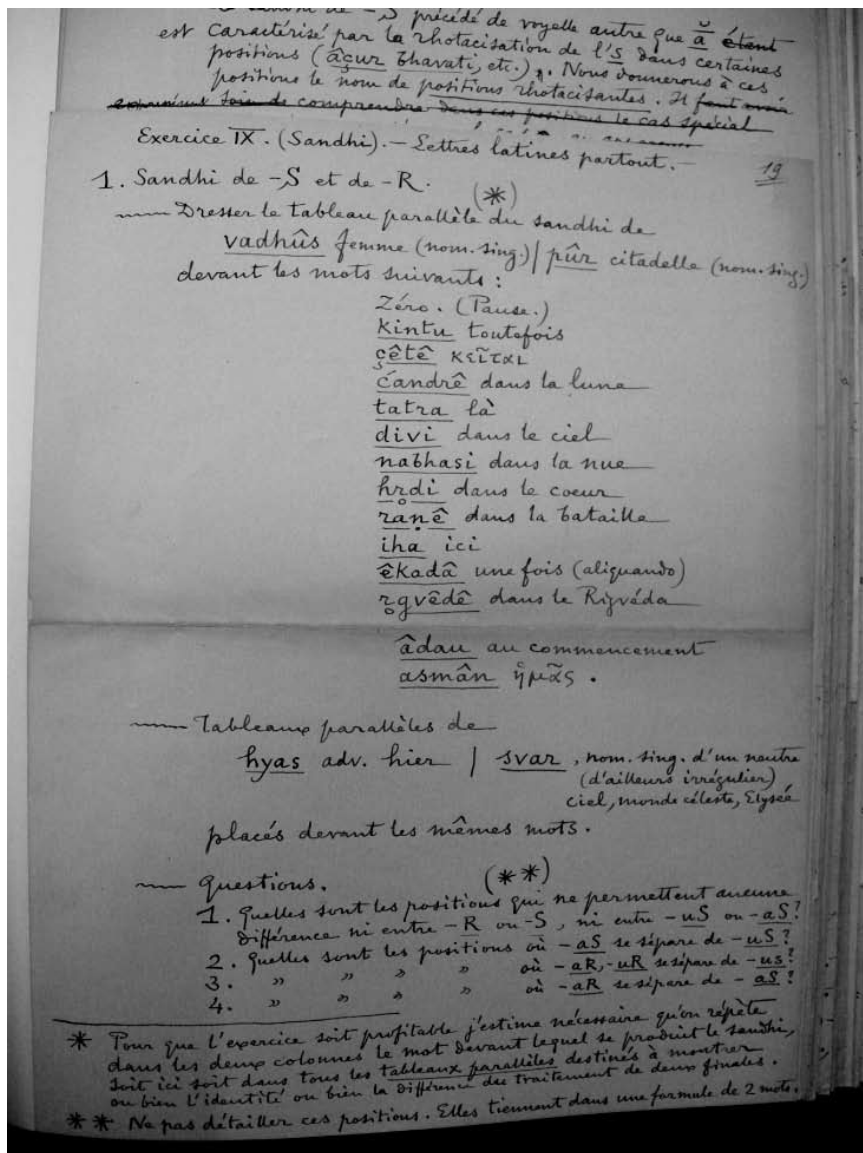 Sandhi de -S précédé de voyelle autre que ă̄ étant
est caractérisé par la rhotacisation de l's dans certaines
positions (âçur bhavati, etc.). Nous donnerons à ces
positions le nom de positions rhotacisantes. Il faut avoir
soin de comprendre dans ces positions le cas spécial
Exercice IX. (Sandhi). — Lettres latines partout. —
19
1. Sandhi de -S et de -R. (*)
— Dresser le tableau parallèle du sandhi de
vadhûs femme (nom. sing.) | pûr citadelle (nom. sing.)
devant les mots suivants :
Zéro. (Pause.)
kintu toutefois
çêtê κεῖται
ćandrê dans la lune
tatra là
divi dans le ciel
nabhasi dans la nue
hr̥di dans le coeur
raṇê dans la bataille
iha ici
êkadâ une fois (aliquando)
r̥gvêdê dans le Rigvéda
âdau au commencement
asmân ἡμᾶς .
— Tableaux parallèles de
hyas adv. hier | svar, nom. sing. d'un neutre
(d'ailleurs irrégulier)
ciel, monde céleste, Elysée
placés devant les mêmes mots.
— Questions. (**)
1. Quelles sont les positions qui ne permettent aucune
différence ni entre -R ou -S, ni entre -uS ou -aS?
2. Quelles sont les positions où -aS se sépare de -uS?
3. " " " " où -aR, -uR se sépare de -us?
4. " " " " où -aR se sépare de -aS?
* Pour que l'exercice soit profitable j'estime nécessaire qu'on répète
dans les deux colonnes le mot devant lequel se produit le sandhi,
soit ici soit dans tous les tableaux parallèles destinés à montrer
ou bien l'identité ou bien la différence du traitement de deux finales.
** Ne pas détailler ces positions. Elles tiennent dans une formule de 2 mots.